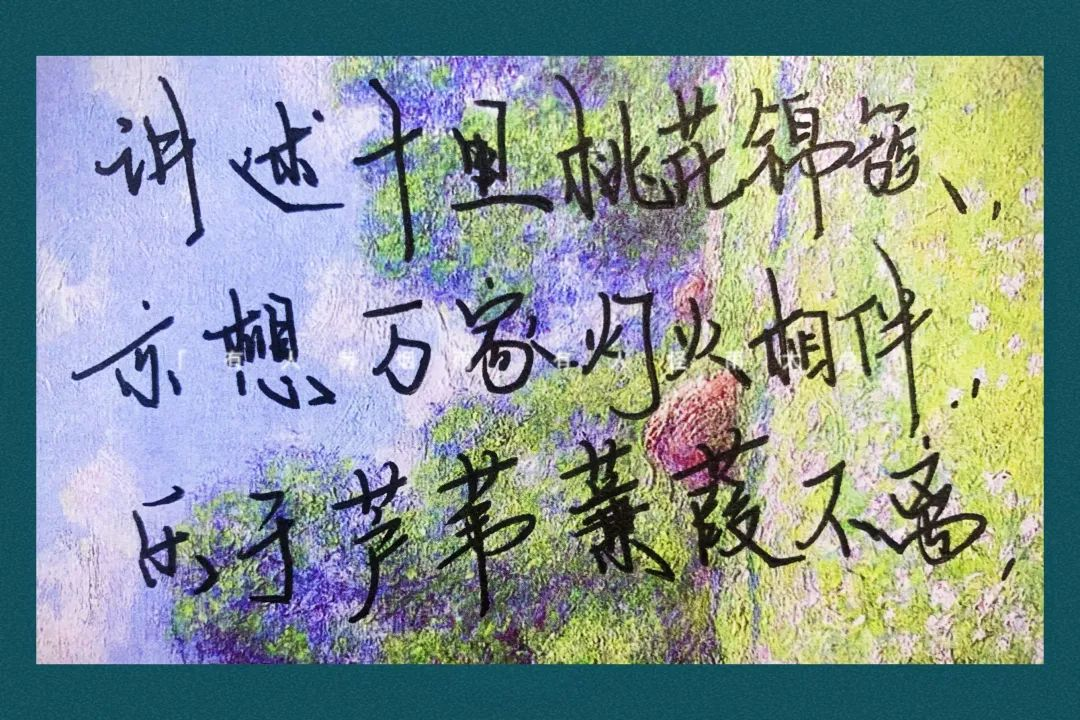 讲述十里桃花锦簇、
亦想万家灯火相伴，
乐于芦苇蒹葭不离，